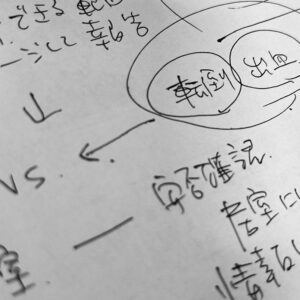 できる転倒
して報告
転倒
出血
VS.
安否確認
居室に
室
情報